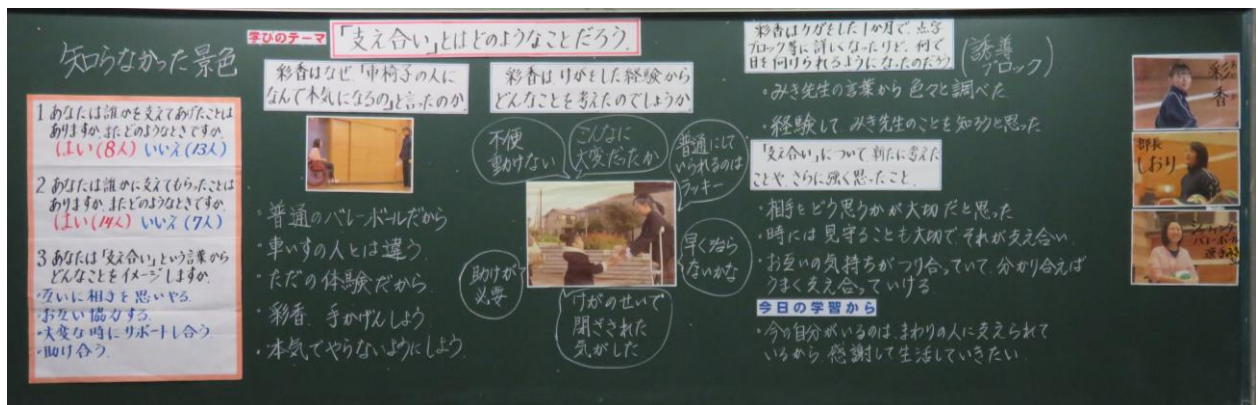 知らなかった景色
学びのテーマ
「支え合い」とはどのようなことだろう。
1 あなたは誰かを支えてあげたことは
ありますか。またどのようなときですか。
はい(8人) いいえ(13人)
2 あなたは誰かに支えてもらったことは
ありますか。またどのようなときですか。
はい(14人) いいえ(7人)
3 あなたは「支え合い」という言葉から
どんなことをイメージしますか。
・互いに相手を思いやる。
・お互い協力する。
・大変な時にサポートし合う。
・助け合う。
彩香はなぜ「車椅子の人に
なんて本気になるの」と言ったのか。
・普通のバレーボールだから
・車いすの人とは違う
・ただの体験だから
・彩香、手かげんしよう
・本気でやらないようにしよう。
彩香はけがをした経験から
どんなことを考えたのでしょうか。
不便
動けない
こんなに
大変だったか
普通にして
いられるのは
ラッキー
助けが
必要
早く治ら
ないかな
けがのせいで
閉ざされた
気がした
彩香はケガをした1か月で、点字
ブロック等に詳しくなったりと、何で
目を向けられるようになったのだろう
(誘導
ブロック)
・みき先生の言葉から色々と調べた。
・経験して、みき先生のことを知ろうと思った
「支え合い」について新たに考えた
ことや、さらに強く思ったこと。
・相手をどう思うかが大切だと思った
・時には見守ることも大切で、それが支え合い。
・お互いの気持ちがつり合っていて、分かり合えば
うまく支え合っていける
今日の学習から
・今の自分がいるのは、まわりの人に支えられて
いるから、感謝して生活していきたい。
彩香
部長
しおり
シッティング
バレーボール
選手